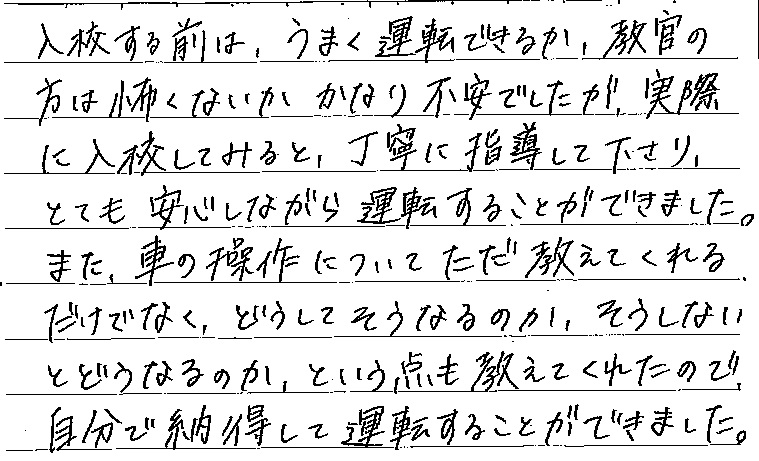 入校する前は、うまく運転できるか、教官の
方は怖くないか かなり不安でしたが、実際
に入校してみると、丁寧に指導して下さり、
とても安心しながら運転することができました。
また、車の操作についてただ教えてくれる
だけでなく、どうしてそうなるのか、そうしない
とどうなるのか、という点も教えてくれたので、
自分で納得して運転することができました。